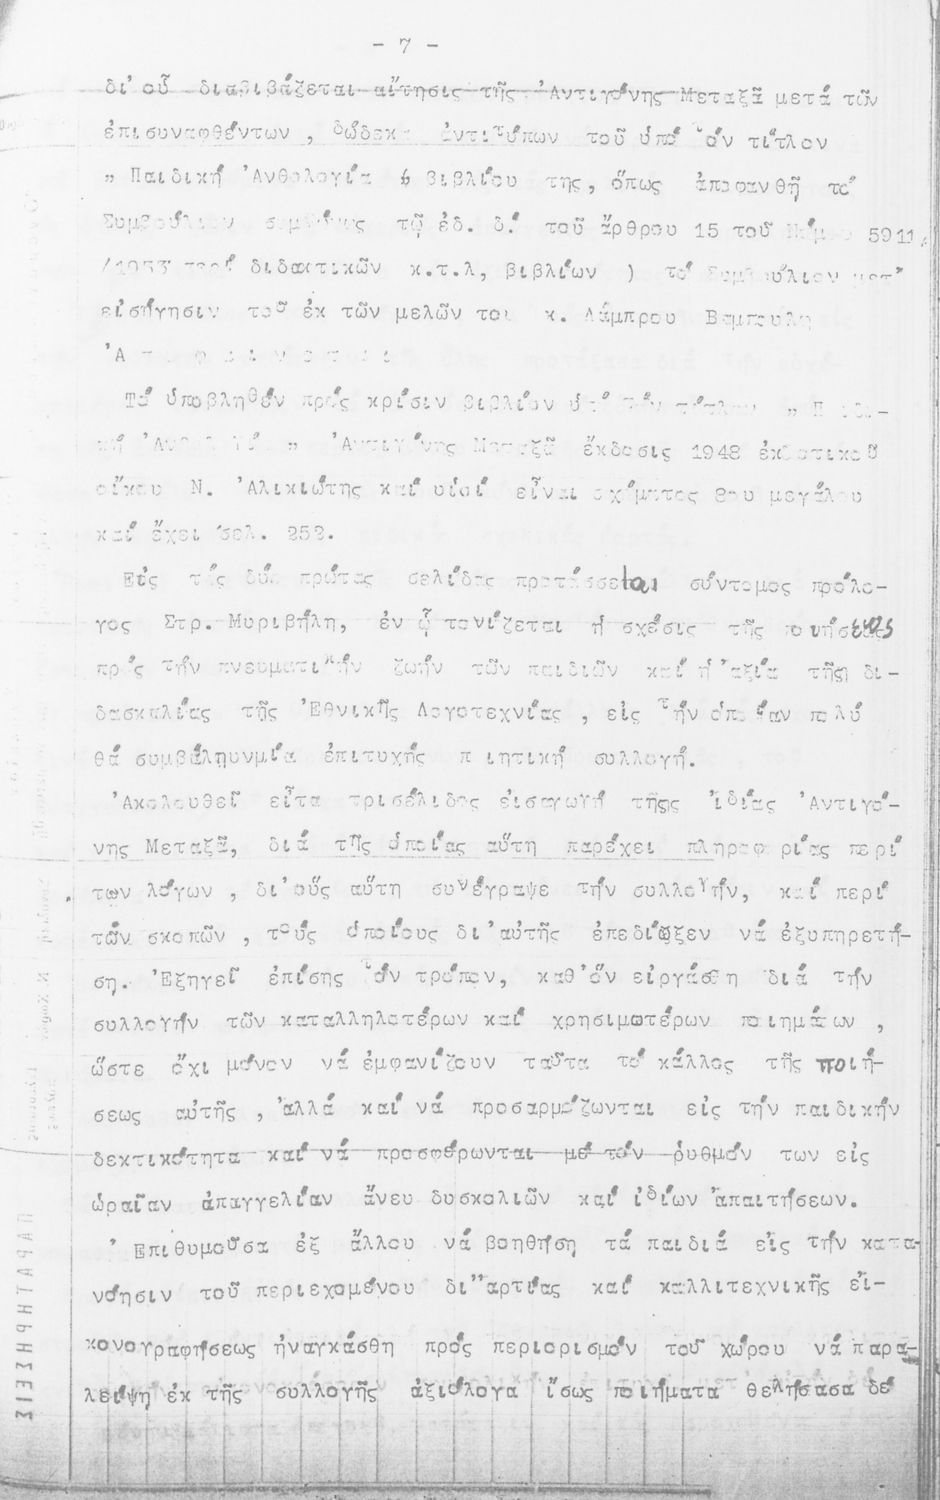 - 7 -
δι' οὗ διαβιβάζεται αἴτησις τῆς 'Αντιγόνης Μεταξᾶ μετά τῶν
ἐπισυναφθέντων , δώδεκα ἀντιτύπων τοῦ ὑπό τόν τίτλον
" Παιδική 'Ανθολογία βιβλίου της, ὅπως ἀποφανθῇ τό
Συμβούλιον συμφώνως τῷ ἐδ. δ. τοῦ ἄρθρου 15 τοῦ Νόμου 5911
/1933 περί διδακτικῶν κ.τ.λ, βιβλίων ) τό Συμβούλιον μετ'
εἰσήγησιν τοῦ ἐκ τῶν μελῶν του κ. Λάμπρου Βαμπούλη
'Α π ο φ α ί ν ε τ α ι
Τό ὑποβληθέν πρός κρίσιν βιβλίον ὑπό τόν τίτλον " Παιδι-
κή 'Ανθολογία " 'Αντιγόνης Μεταξᾶ ἔκδοσις 1948 ἐκδοτικοῦ
οἴκου Ν. 'Αλικιώτης καί υἱοί εἶναι σχήματος 8ου μεγάλου
καί ἔχει σελ. 252.
Εἰς τάς δύο πρώτας σελίδας προτάσσεται σύντομος πρόλο-
γος Στρ. Μυριβήλη, ἐν ᾧ τονίζεται ἡ σχέσις τῆς ποιήσεως
πρός τήν πνευματικήν ζωήν τῶν παιδιῶν καί ἡ ἀξία τῆς δι-
δασκαλίας τῆς 'Εθνικῆς Λογοτεχνίας , εἰς τήν ὁποίαν πολύ
θά συμβάλῃουνμία ἐπιτυχής ποιητική συλλογή.
'Ακολουθεῖ εἶτα τρισέλιδος εἰσαγωγή τῆςς ἰδίας 'Αντιγό-
νης Μεταξᾶ, διά τῆς ὁποίας αὕτη παρέχει πληροφορίας περί
των λόγων , δι'οὕς αὕτη συνέγραψε τήν συλλογήν, καί περί
τῶν σκοπῶν , τούς ὁποίους δι'αὐτῆς ἐπεδίωξεν νά ἐξυπηρετή-
ση. 'Εξηγεῖ ἐπίσης τόν τρόπον, καθ'ὅν εἰργάσθη διά τήν
συλλογήν τῶν καταλληλοτέρων καί χρησιμωτέρων ποιημάτων ,
ὥστε ὄχι μόνον νά ἐμφανίζουν ταῦτα τό κάλλος τῆς ποιή-
σεως αὐτῆς , ἀλλά καί νά προσαρμόζωνται εἰς τήν παιδικήν
δεκτικότητα καί νά προσφέρωνται μέ τόν ῥυθμόν των εἰς
ὡραῖαν ἀπαγγελίαν ἄνευ δυσκολιῶν καί ἰδίων ἀπαιτήσεων.
'Επιθυμοῦσα ἐξ ἄλλου νά βοηθήση τά παιδιά εἰς τήν κατα-
νόησιν τοῦ περιεχομένου δι"αρτίας καί καλλιτεχνικῆς εἰ-
κονογραφήσεως ἠναγκάσθη πρός περιορισμόν τοῦ χώρου νά παρα-
λείψη ἐκ τῆς συλλογῆς ἀξιόλογα ἴσως ποιήματα θελήσασα δέ
ΠΑΡΑΤΗΡΗΣΕΙΣ